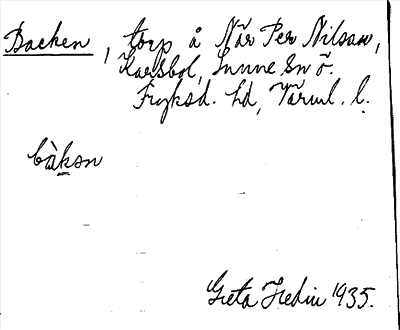 Backen, torp å När Per Nilsson,
Karsbol, Sunne Sn ö.
Fryksd. hd, Värml. l.
bàkən
Greta Hedin 1935.